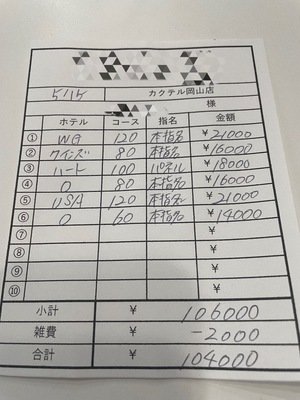 5/15
カクテル岡山店
様
ホテル コース 指名 金額
① WG 120 本指名 ¥21000
② クインズ 80 本指名 ¥16000
③ ハート 100 パネル ¥18000
④ O 80 本指名 ¥16000
⑤ USA 120 本指名 ¥21000
⑥ O 60 本指名 ¥14000
⑦ ¥
⑧ ¥
⑨ ¥
⑩ ¥
小計 ¥ 106000
雑費 ¥ -2000
合計 ¥ 104000